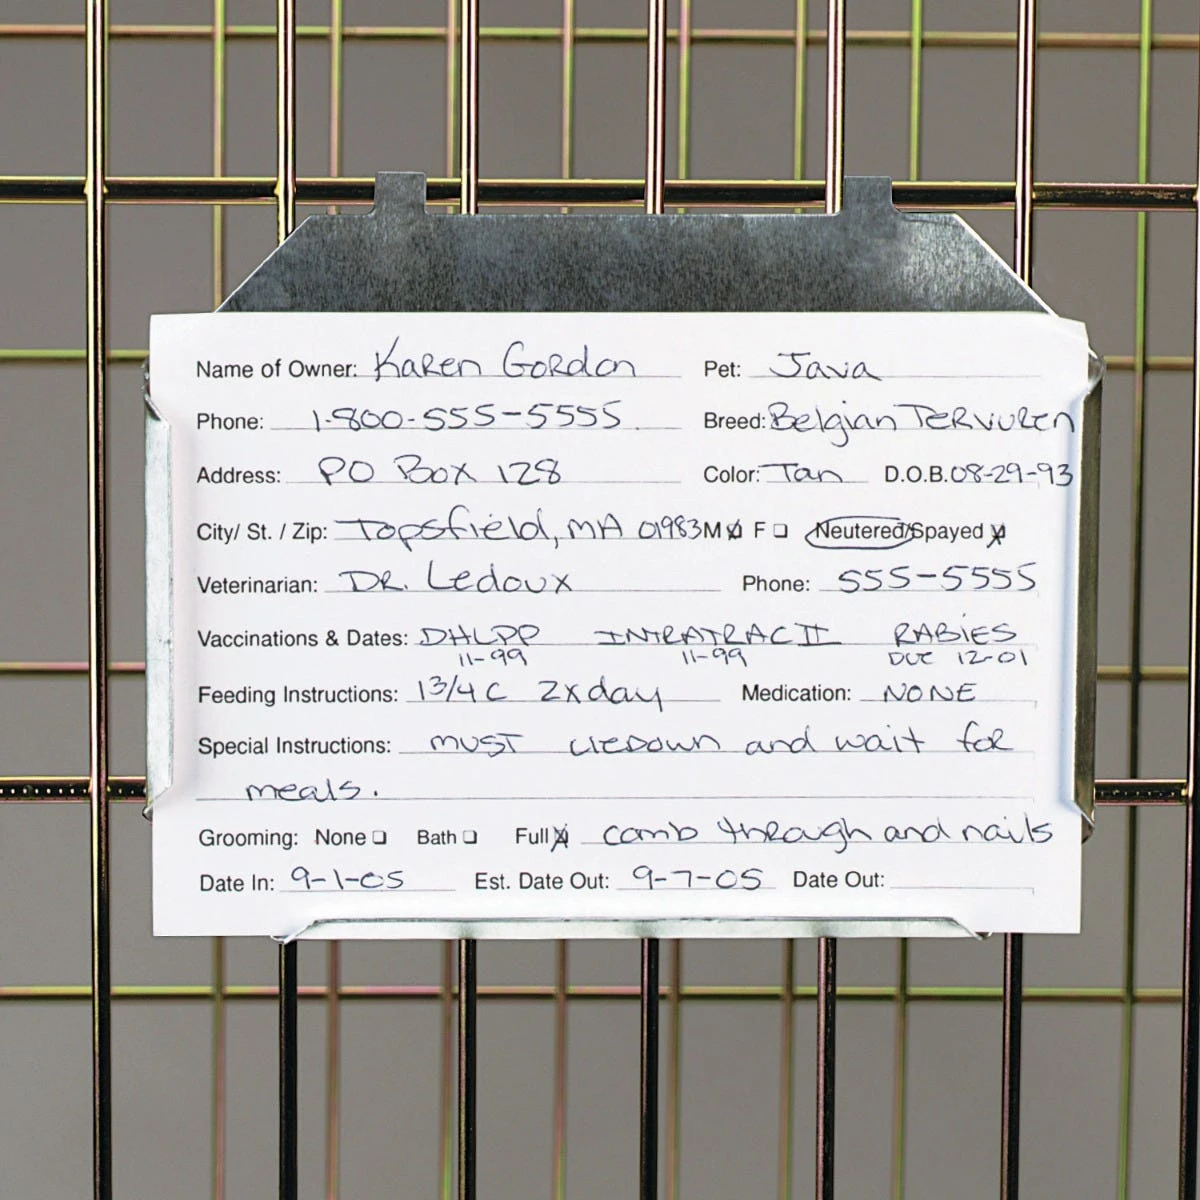 Name of Owner: Karen Gordon Pet: Java
Phone: 1-800-555-5555 Breed: Belgian Tervuren
Address: PO Box 128 Color: Tan D.O.B. 08-29-93
City/ St. / Zip: Topsfield, MA 01983 M ☒ F ☐ Neutered/Spayed ☒
Veterinarian: DR. Ledoux Phone: 555-5555
Vaccinations & Dates: DHLPP INTRATRAC II RABIES
11-99 11-99 DUE 12-01
Feeding Instructions: 1 3/4 C 2x day Medication: NONE
Special Instructions: must liedown and wait for
meals.
Grooming: None ☐ Bath ☐ Full ☒ comb through and nails
Date In: 9-1-05 Est. Date Out: 9-7-05 Date Out: